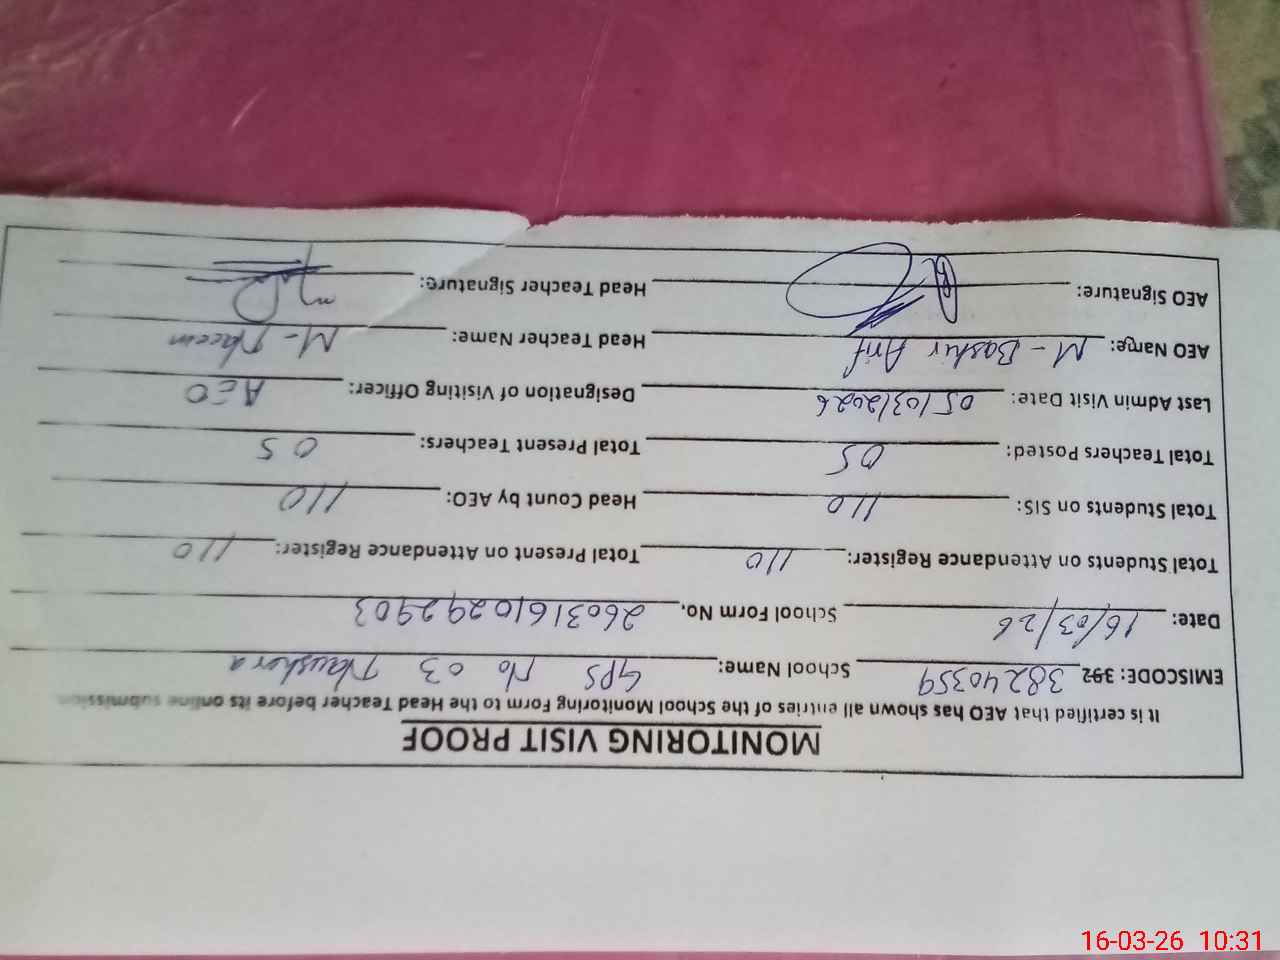 MONITORING VISIT PROOF
It is certified that AEO has shown all entries of the School Monitoring Form to the Head Teacher before its online submission
EMISCODE: 392 38240359 School Name: GPS No 03 Naushera
Date: 16/03/26 School Form No. 26031610292903
Total Students on Attendance Register: 110 Total Present on Attendance Register: 110
Total Students on SIS: 110 Head Count by AEO: 110
Total Teachers Posted: 05 Total Present Teachers: 05
Last Admin Visit Date: 05/03/2026 Designation of Visiting Officer: AEO
AEO Name: M - Bashir Arif Head Teacher Name: M - Naeem
AEO Signature: Head Teacher Signature:
16-03-26 10:31